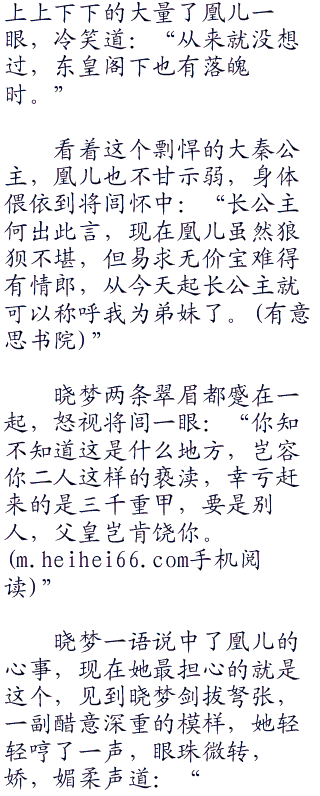 上上下下的大量了凰儿一
眼，冷笑道：“从来就没想
过，东皇阁下也有落魄
时。”
看着这个剽悍的大秦公
主，凰儿也不甘示弱，身体
偎依到将闾怀中：“长公主
何出此言，现在凰儿虽然狼
狈不堪，但易求无价宝难得
有情郎，从今天起长公主就
可以称呼我为弟妹了。(有意
思书院)”
晓梦两条翠眉都蹙在一
起，怒视将闾一眼：“你知
不知道这是什么地方，岂容
你二人这样的亵渎，幸亏赶
来的是三千重甲，要是别
人，父皇岂肯饶你。
(m.heihei66.com手机阅
读)”
晓梦一语说中了凰儿的
心事，现在她最担心的就是
这个，见到晓梦剑拔弩张，
一副醋意深重的模样，她轻
轻哼了一声，眼珠微转，
娇，媚柔声道：“